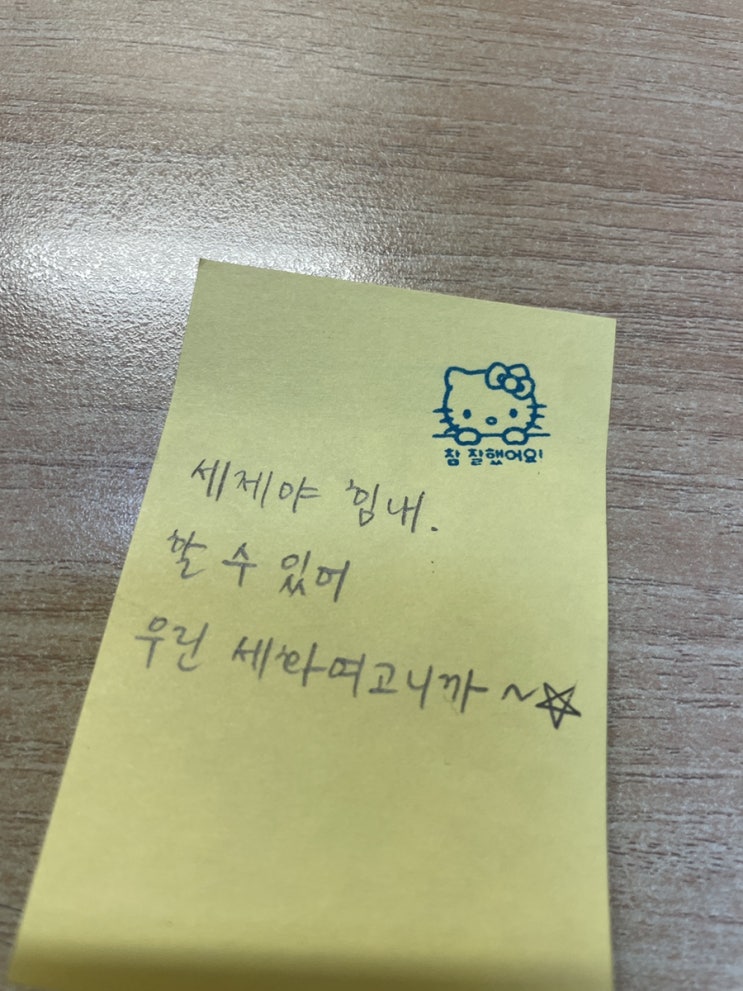 참 잘했어요!
세제야 힘내.
할 수 있어
우린 세화여고니까 ~☆